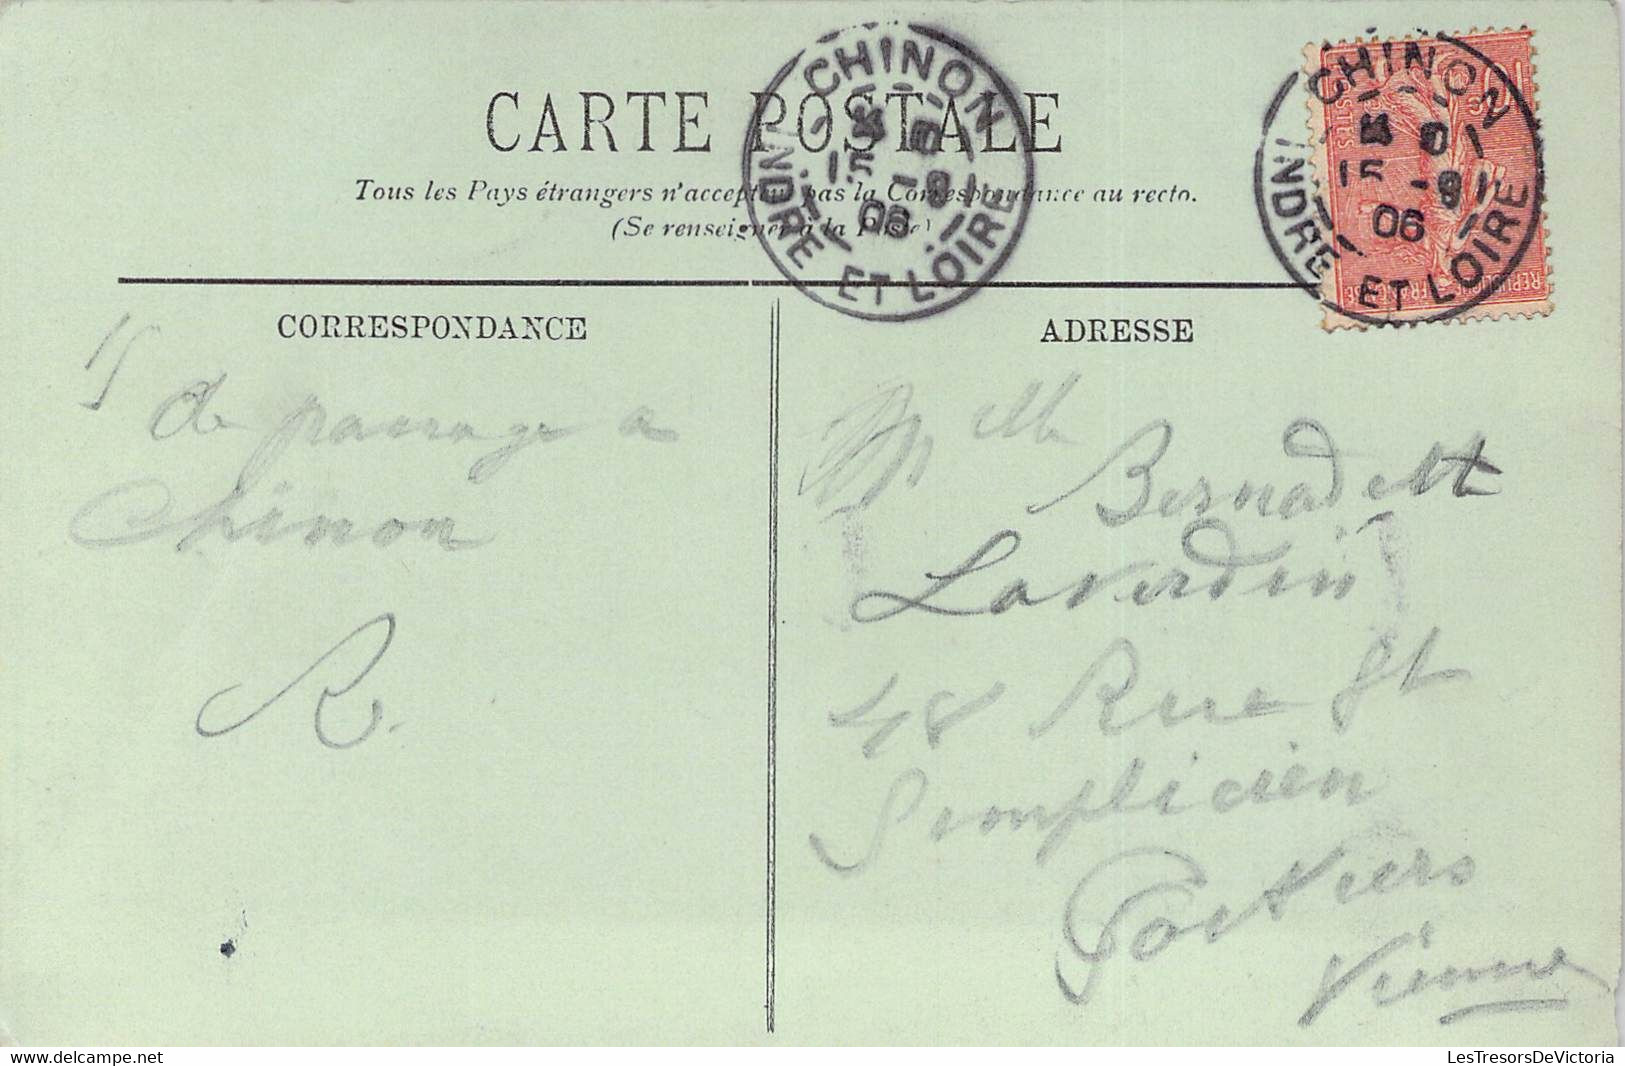 CARTE POSTALE
Tous les Pays étrangers n'acceptent pas la Correspondance au recto.
(Se renseigner à la Poste)
CHINON
INDRE ET LOIRE
06
CHINON
15 -9
06
INDRE ET LOIRE
REPUBLIQUE FRANÇAISE
10 c
CORRESPONDANCE
ADRESSE
de passage a
Chinon
R.
Mlle
Bernadette
Laverdin
48 Rue St
Simplicien
Poitiers
Vienne
LesTresorsDeVictoria